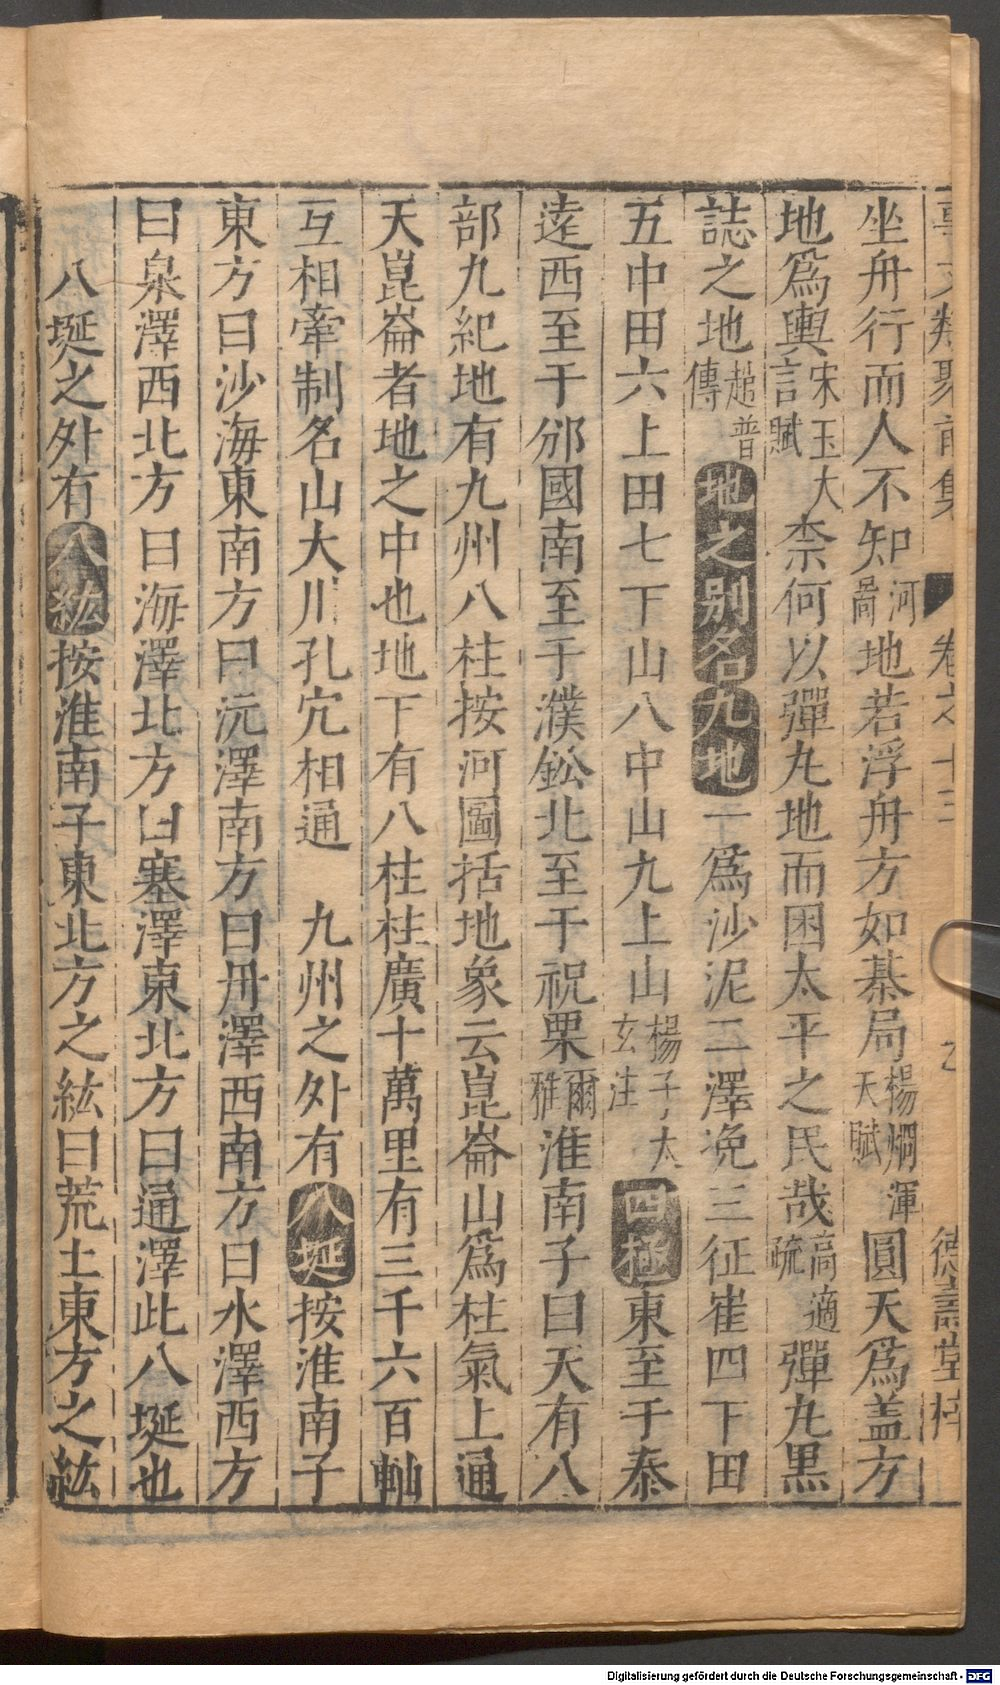 事文類聚前集 卷之十三 德壽堂梓
坐舟行而人不知河圖地若浮舟方如棊局楊烱渾天賦圓天爲盖方
地爲輿宋玉大言賦柰何以彈丸地而困太平之民哉高適疏彈丸黑
誌之地趙普傳地之别名九地一爲沙泥二澤浼三征崔四下田
五中田六上田七下山八中山九上山楊子太玄注四極東至于泰
逺西至于邠國南至于濮鈆北至于祝栗爾雅淮南子曰天有八
部九紀地有九州八柱按河圖括地象云崑崙山爲柱氣上通
天崑崙者地之中也地下有八柱柱廣十萬里有三千六百軸
互相牽制名山大川孔穴相通 九州之外有八埏按淮南子
東方曰沙海東南方曰沅澤南方曰丹澤西南方曰水澤西方
曰泉澤西北方曰海澤北方曰塞澤東北方曰通澤此八埏也
八埏之外有八紘按淮南子東北方之紘曰荒土東方之紘
Digitalisierung gefördert durch die Deutsche Forschungsgemeinschaft - DFG